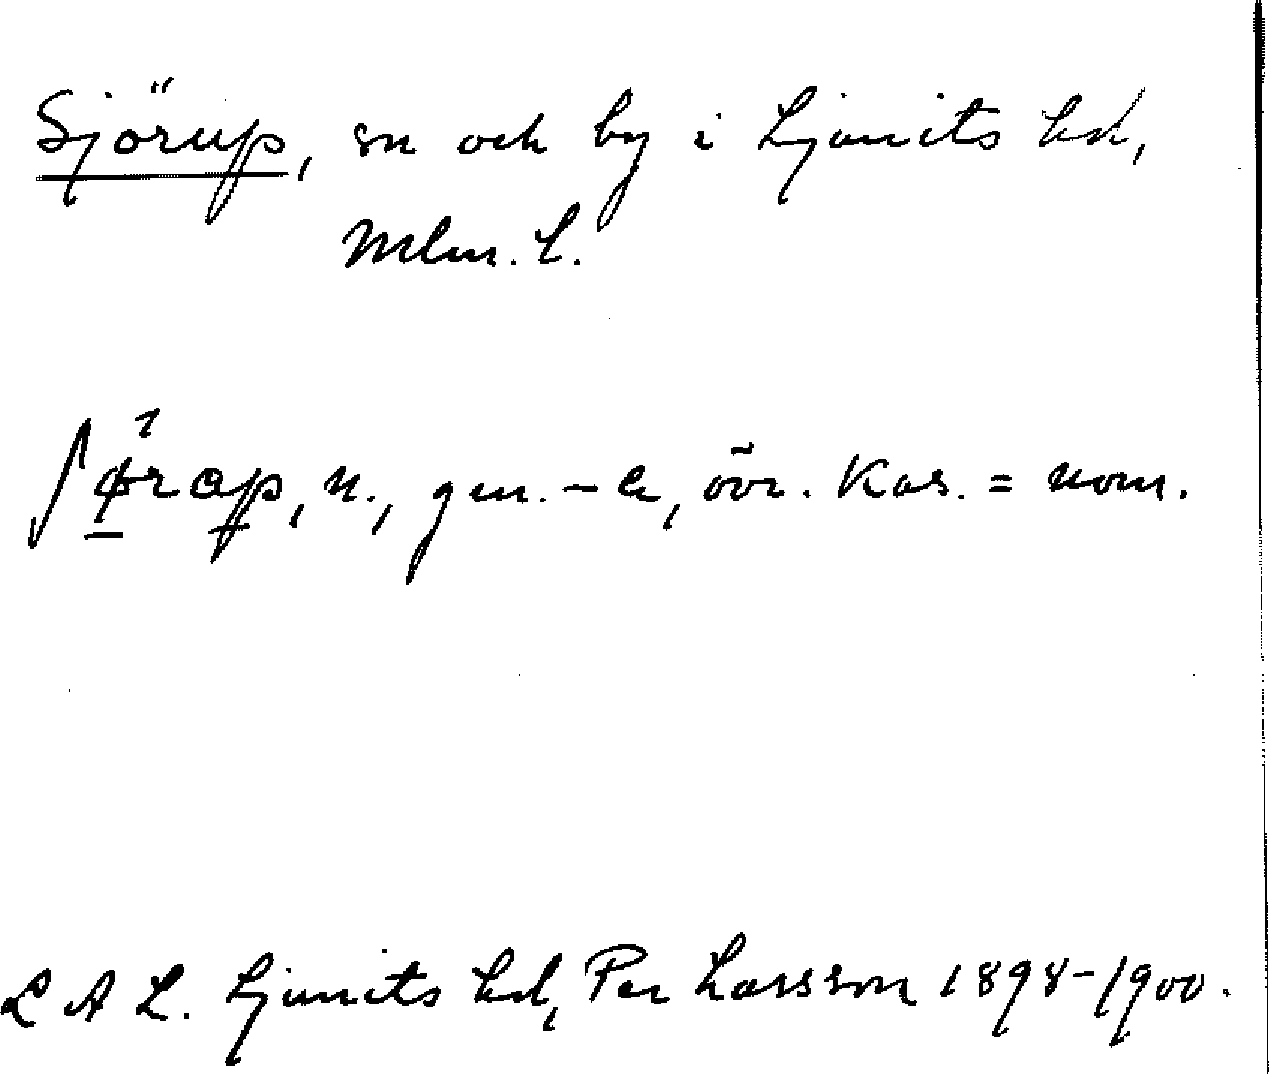 Sjörup, sn och by i Ljunits hd,
Mlm. L.
ʃø̱rap, n., gen. -a, övr. Kas. = nom.
L A L. Ljunits hd, Per Larsson 1898-1900.